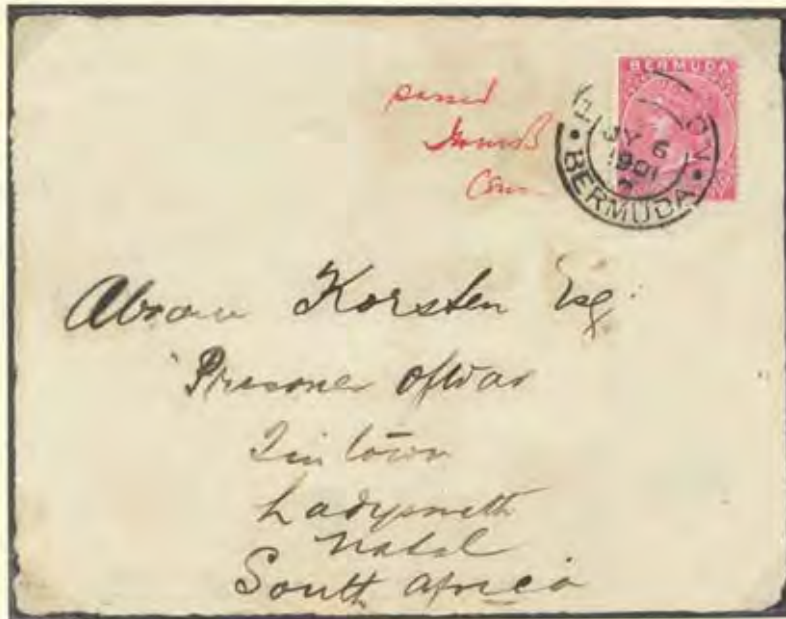 BERMUDA
passed
JY 6
1901
BERMUDA
Abram Korsten Esq.
Prisoner of War
Tin town
Ladysmith
Natal
South Africa